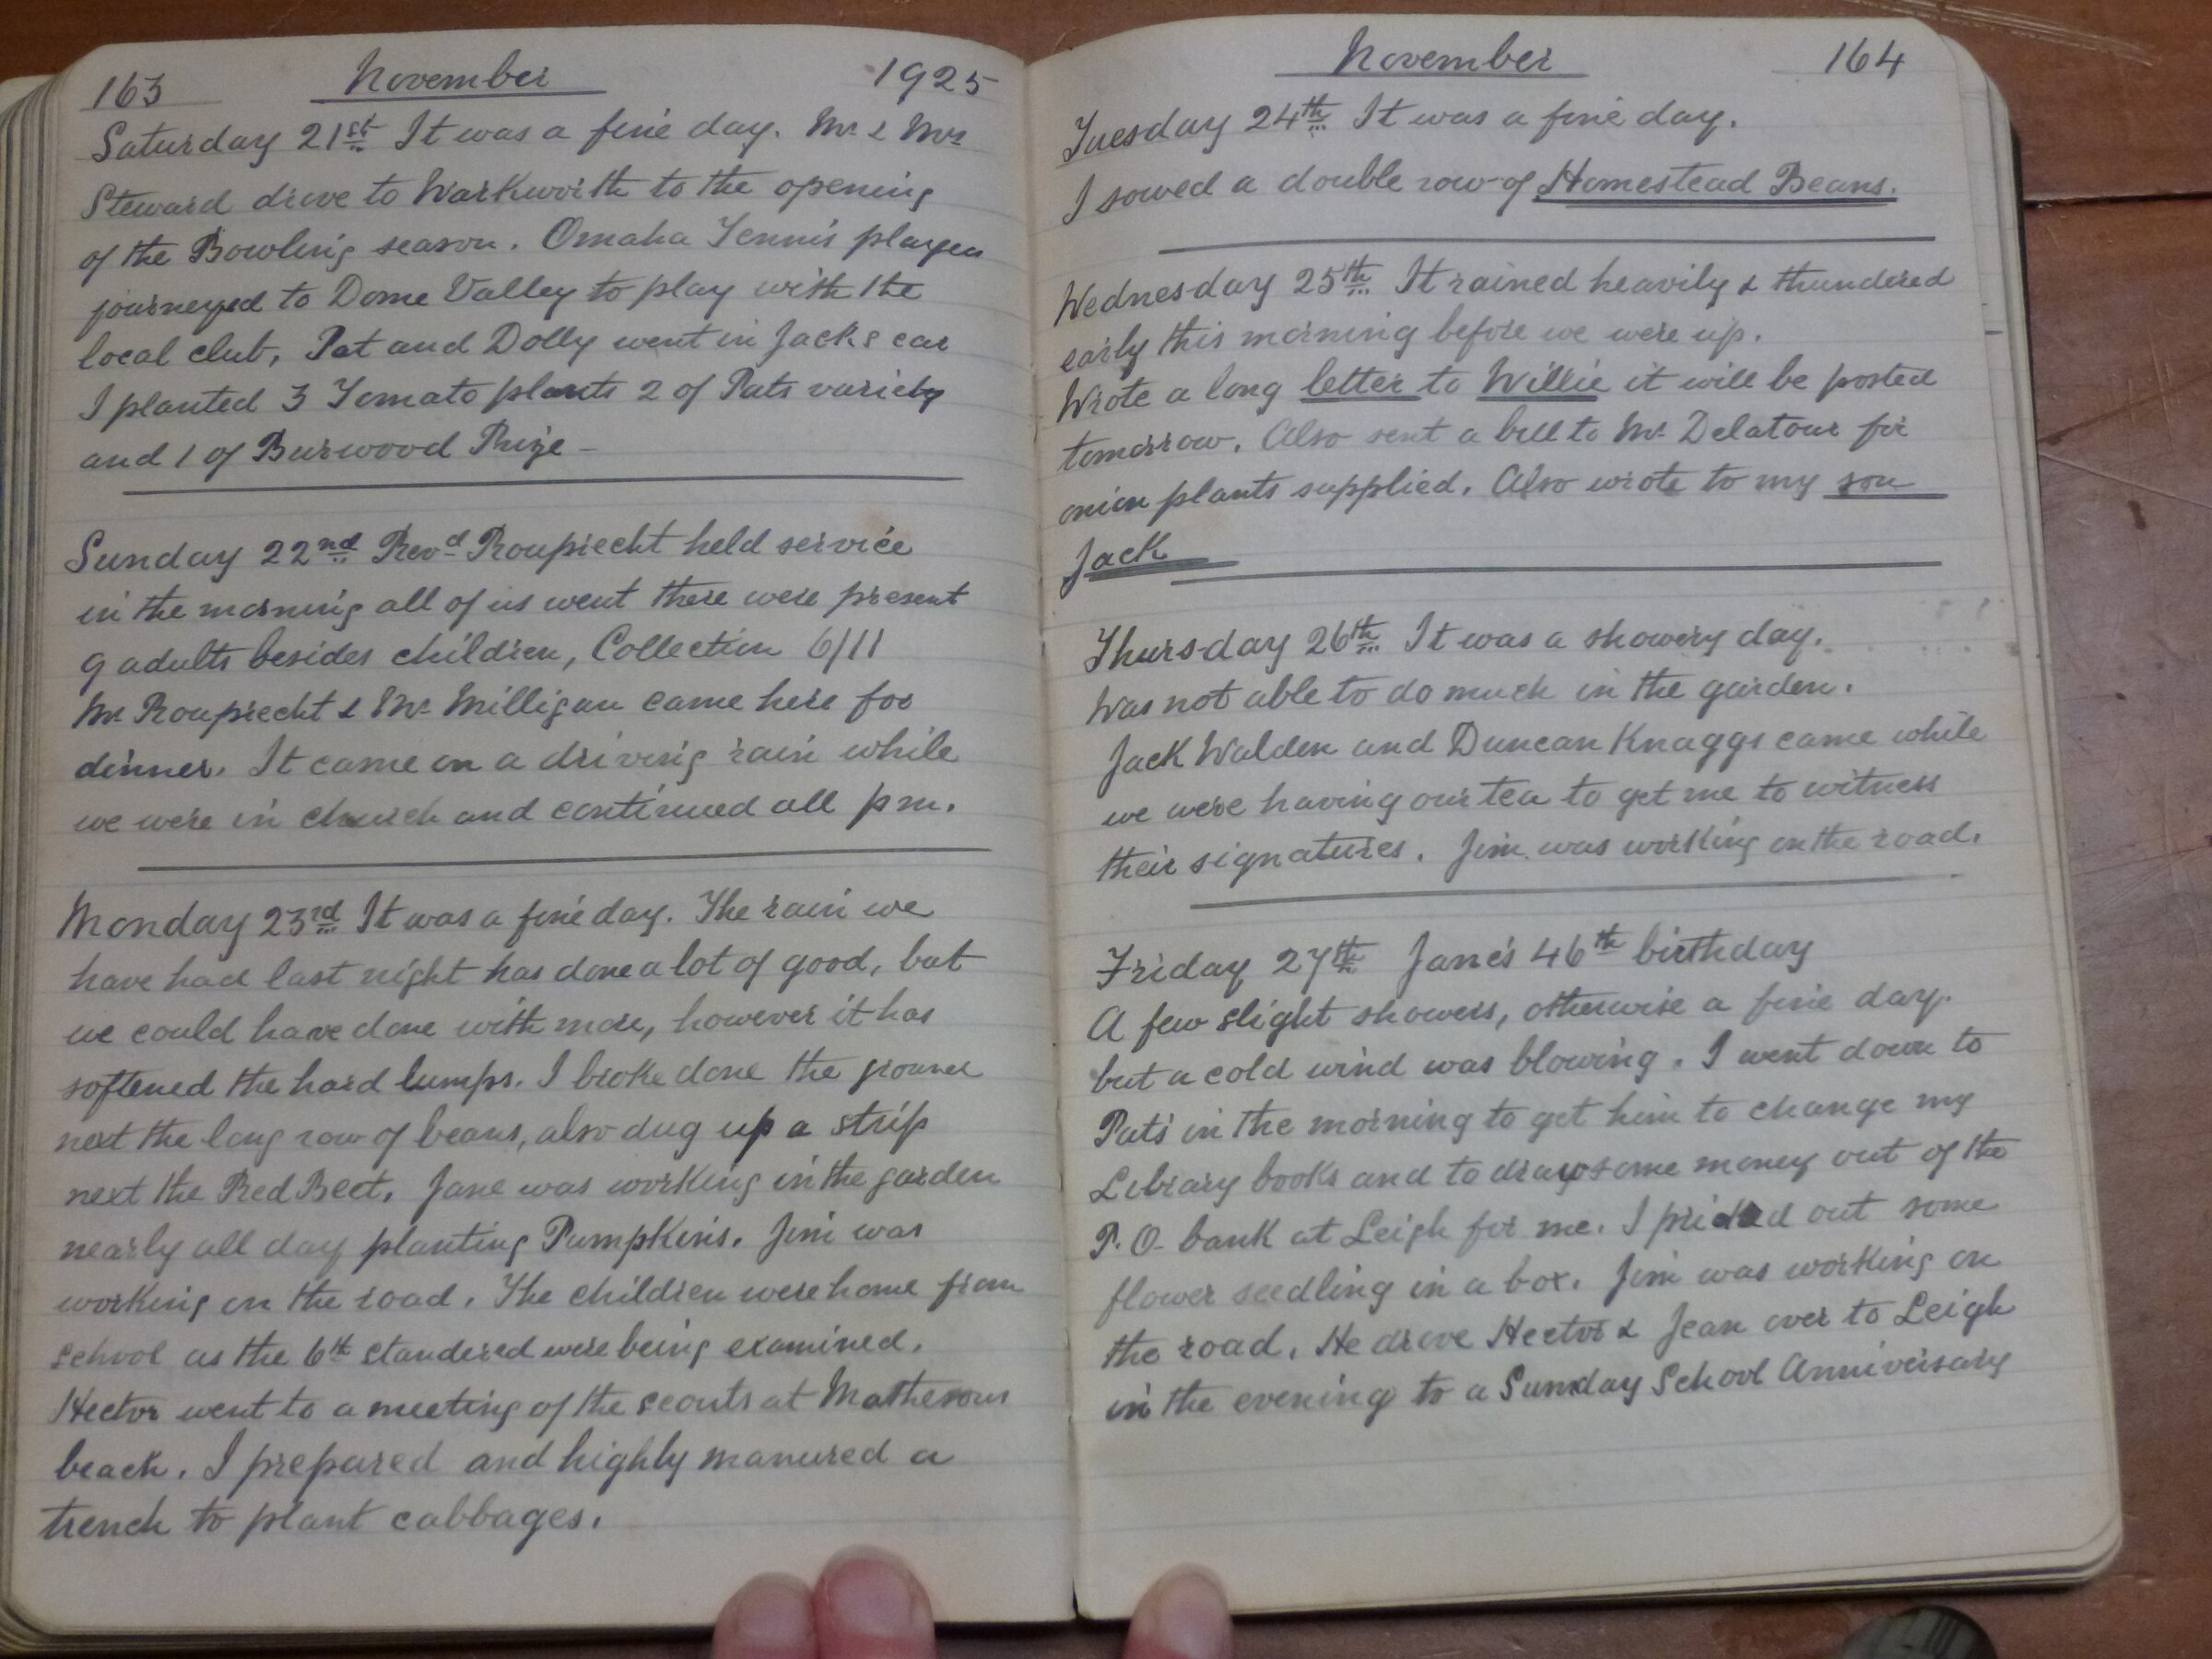 163 November 1925
Saturday 21st It was a fine day. Mr & Mrs
Steward drove to Warkworth to the opening
of the Bowling season. Omaha Tennis players
journeyed to Dome Valley to play with the
local club, Pat and Dolly went in Jacks car
I planted 3 Tomato plants 2 of Pats variety
and 1 of Burwood Prize -
Sunday 22nd Revd Rouprecht held service
in the morning all of us went there were present
9 adults besides children, Collection 6/11
Mr Rouprecht & Mr Milligan came here for
dinner. It came on a driving rain while
we were in church and continued all pm.
Monday 23rd It was a fine day. The rain we
have had last night has done a lot of good, but
we could have done with more, however it has
softened the hard lumps. I broke done the ground
next the long row of beans, also dug up a strip
next the Red Beet. Jane was working in the garden
nearly all day planting Pumpkins. Jim was
working on the road. The children were home from
school as the 6th standered were being examined.
Hector went to a meeting of the scouts at Mathesons
beach. I prepared and highly manured a
trench to plant cabbages.
November 164
Tuesday 24th It was a fine day.
I sowed a double row of Homestead Beans.
Wednesday 25th It rained heavily & thundered
early this morning before we were up.
Wrote a long letter to Willie it will be posted
tomorrow. Also sent a bill to Mr Delatour for
onion plants supplied. Also wrote to my son
Jack
Thursday 26th It was a showery day.
Was not able to do much in the garden.
Jack Walden and Duncan Knaggs came while
we were having our tea to get me to witness
their signatures. Jim was working on the road.
Friday 27th Jane's 46th birthday
A few slight showers, otherwise a fine day.
but a cold wind was blowing. I went down to
Pats in the morning to get him to change my
Library books and to draw some money out of the
P.O. bank at Leigh for me. I pricked out some
flower seedling in a box. Jim was working on
the road. He drove Hector & Jean over to Leigh
in the evening to a Sunday School Anniversary